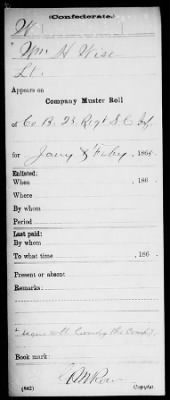 (Confederate.)
W
Wm H Wise
Lt.
Appears on
Company Muster Roll
of Co B. 23 Regt S.C. Inf,
for Jany & Feby, 1864
Enlisted:
When , 186
Where
By whom
Period
Last paid:
By whom
To what time , 186
Present or absent
Remarks:
the Company
Book mark:
(642) Copyist.